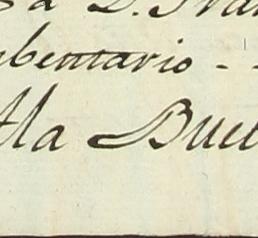 a D. Fran
bentario - -
lla Buel